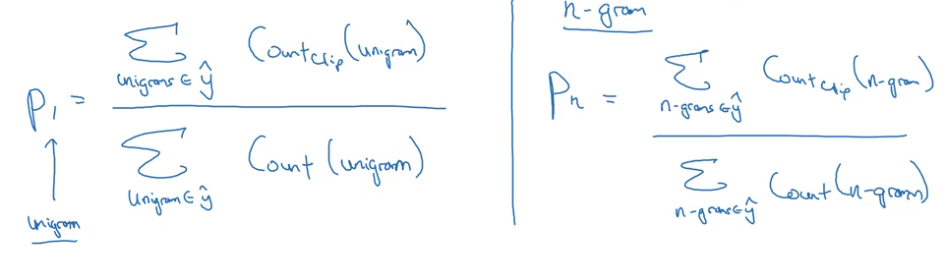 P₁ = ∑ unigrams ∈ ŷ Count_clip (unigram)
∑ unigram ∈ ŷ Count (unigram)
unigram
n-gram
Pₙ = ∑ n-grams ∈ ŷ Count_clip (n-gram)
∑ n-grams ∈ ŷ Count (n-gram)